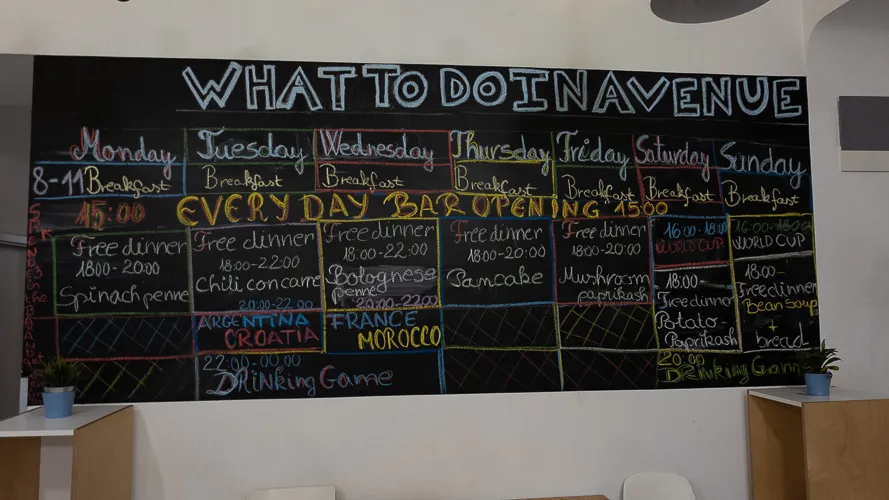 WHAT TO DO IN AVENUE
Monday Tuesday Wednesday Thursday Friday Saturday Sunday
8-11 Breakfast Breakfast Breakfast Breakfast Breakfast Breakfast Breakfast
15:00 EVERY DAY BAR OPENING 15:00
Free dinner
18:00-20:00
Spinach penne
Free dinner
18:00-22:00
Chili con carne
20:00-22:00
ARGENTINA
CROATIA
22:00-00:00
DRiNKiNG GAME
Free dinner
18:00-22:00
Bolognese
penne
20:00-22:00
FRANCE
MOROCCO
Free dinner
18:00-20:00
Pancake
Free dinner
18:00-20:00
Mushroom
paprikash
16:00-18:00
WORLD CUP
18:00-
Free dinner
Potato-
Paprikash
20:00
DRiNKiNG GAME
16:00-18:00
WORLD CUP
18:00-
Free dinner
Bean Soup
+
bread